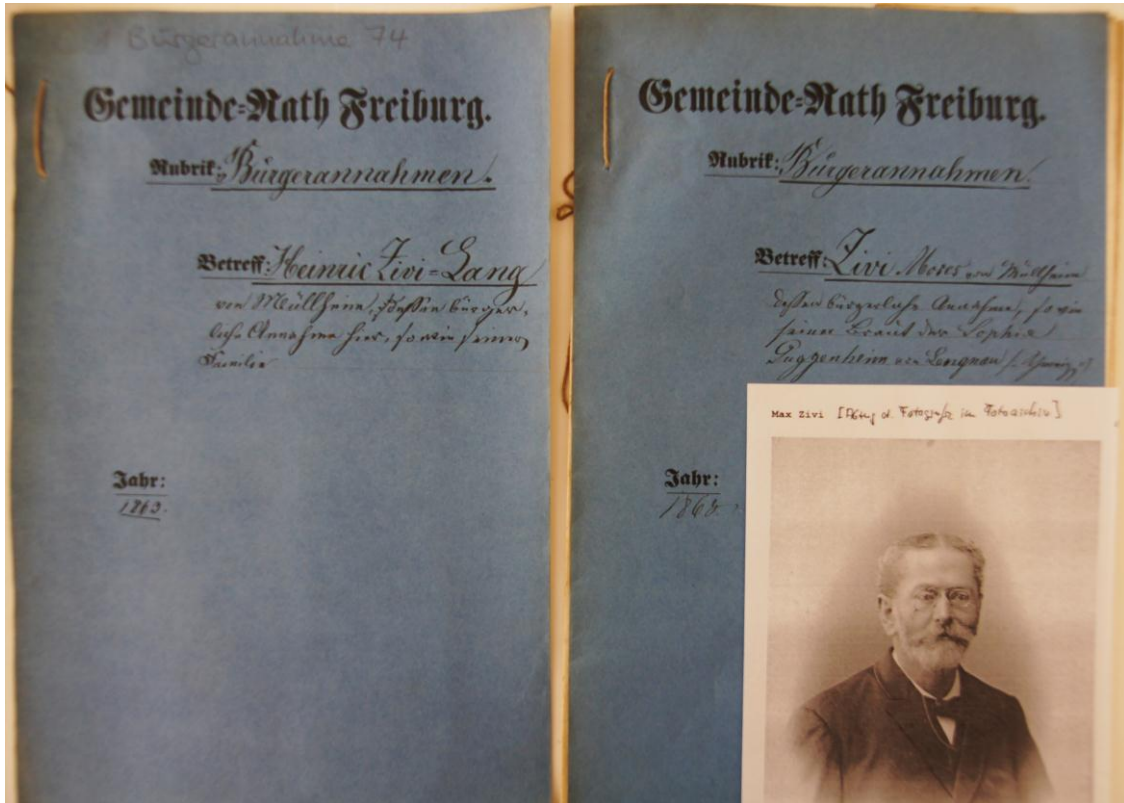 Bürgerannahme 74
Gemeinde=Rath Freiburg.
Rubrik: Bürgerannahmen.
Betreff: Heinric Zivi=Lang
von Müllheim, dessen bürger-
liche Annahme hier, sowie seiner
Familie
Jahr:
1863.
Gemeinde=Rath Freiburg.
Rubrik: Bürgerannahmen.
Betreff: Zivi Moses von Müllheim
dessen bürgerliche Annahme, sowie
seiner Braut der Sophie
Guggenheim von Lengnau
Jahr:
Max Zivi [Abzug d. Fotografie im Fotoarchiv]